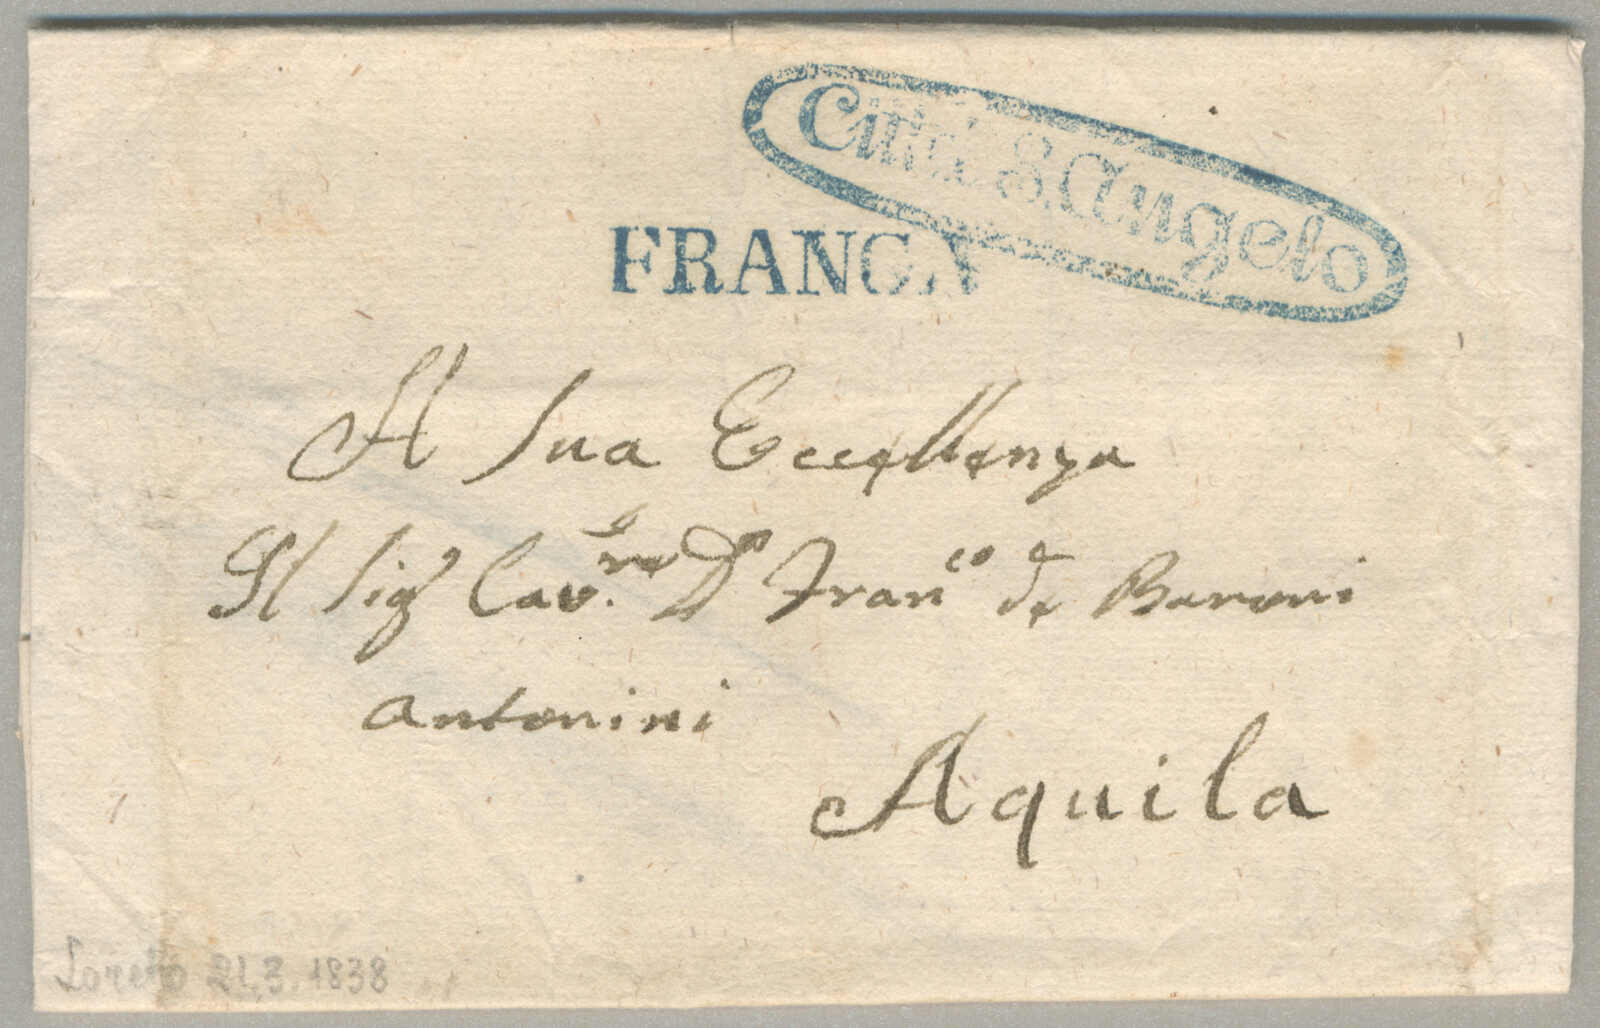 Città S. Angelo
FRANCA
A Sua Eccellenza
Il Sig.r Cav.re D.n Fran.co de Baroni
Antonini
Aquila
Loreto 21.3.1838